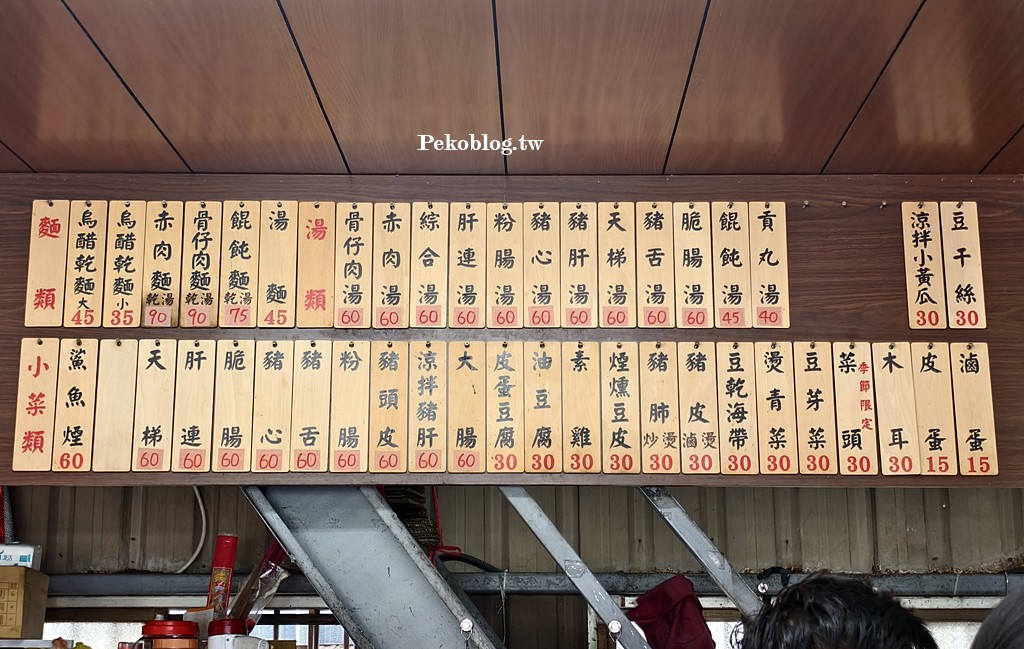 Pekoblog.tw
麵類
烏醋乾麵大 45
烏醋乾麵小 35
赤肉麵乾湯 90
骨仔肉麵乾湯 90
餛飩麵乾湯 75
湯麵 45
湯類
骨仔肉湯 60
赤肉湯 60
綜合湯 60
肝連湯 60
粉腸湯 60
豬心湯 60
豬肝湯 60
天梯湯 60
豬舌湯 60
脆腸湯 60
餛飩湯 45
貢丸湯 40
涼拌小黃瓜 30
豆干絲 30
小菜類
鯊魚煙 60
天梯 60
肝連 60
脆腸 60
豬心 60
豬舌 60
粉腸 60
豬頭皮 60
涼拌豬肝 60
大腸 60
皮蛋豆腐 30
油豆腐 30
素雞 30
煙燻豆皮 30
豬肺炒燙 30
豬皮滷燙 30
豆乾海帶 30
燙青菜 30
豆芽菜 30
菜頭季節限定 30
木耳 30
皮蛋 15
滷蛋 15